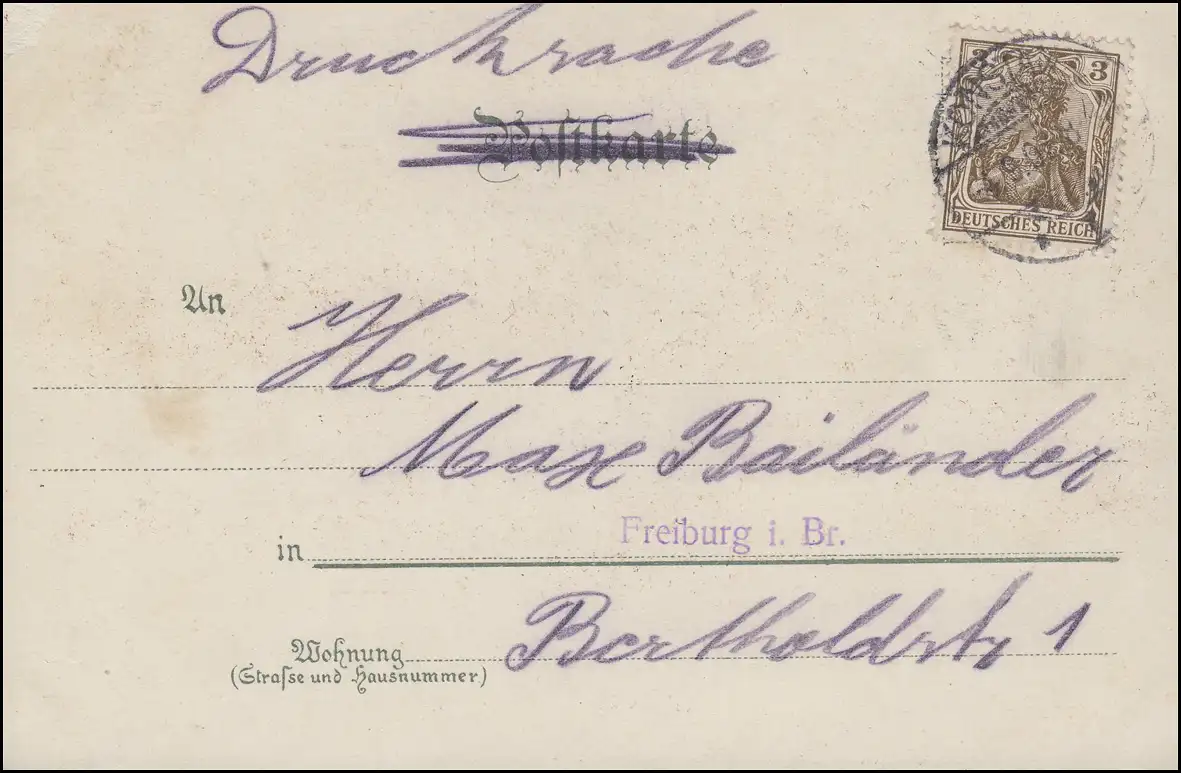 Drucksache
Postkarte
3 3
DEUTSCHES REICH
An
Herrn
Max Bailänder
Freiburg i. Br.
in
Bertholdstr 1
Wohnung
(Strasse und Hausnummer)